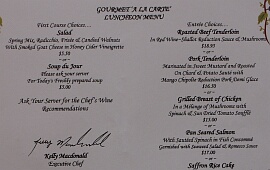 GOURMET 'A LA CARTE'
LUNCHEON MENU
First Course Choices...
Salad
Spring Mix, Radicchio, Frisée & Candied Walnuts
With Smoked Goat Cheese in Honey Cider Vinaigrette
$5.50
or
Soup du Jour
Please ask your server
For Today's Freshly prepared soup
$5.00
Ask Your Server for the Chef's Wine
Recommendations
Kelly Macdonald
Executive Chef
Entrée Choices...
Roasted Beef Tenderloin
In Red Wine-Shallot Reduction Sauce & Mushrooms
$18.50
or
Pork Tenderloin
Marinated in Sweet Mustard and Roasted
On Chard & Potato Sauté with
Mango Chipotle Reduction Pork Demi Glaze
$16.50
or
Grilled Breast of Chicken
In a Mélange of Mushrooms with
Spinach & Sun Dried Tomato Soufflé
$15.00
or
Pan Seared Salmon
With Sautéed Spinach in Fish Consommé
Garnished w/ Seaweed Salad & Sauce
$17.00
or
Saffron Rice Cake